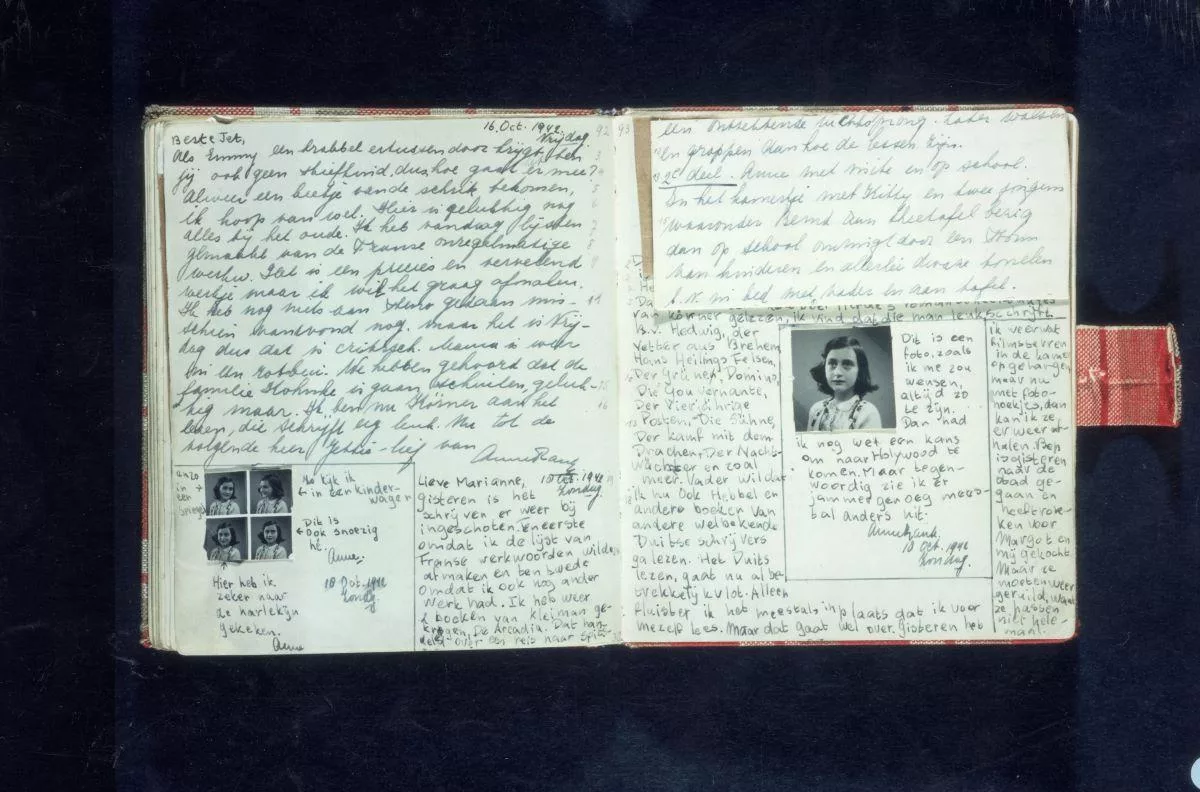 16 Oct. 1942.
Vrijdag
92
Beste Jet,
Als Emmy een krabbel ertussendoor krijgt, ben
jij ook geen stiefkind, dus hoe gaat er mee?
Alweer een beetje van de schrik bekomen,
ik hoop van wel. Hier is gelukkig nog
alles bij het oude. Ik heb vandaag lijsten
gemaakt van de Franse onregelmatige
werkw. Het is een precies en vervelend
werkje maar ik wil het graag afmaken.
Ik heb nog niets aan gedaan mis-
schien vanavond nog, maar het is Vrij-
dag dus dat is critisch. Mama is weer
We hebben gehoord dat de
familie is gaan schuilen, geluk-
kig maar. Ik ben nu Körner aan het
lezen, die schrijft erg leuk. Nu tot de
volgende keer Jettie-lief van
Anne Frank
in
een
spiegel
Zo kijk ik
in een kinder-
wagen
Dit is
ook snoezig
hè.
Anne.
Hier heb ik
zeker naar
de harlekijn
gekeken.
Anne
18 Oct. 1942
Zondag
Lieve Marianne,
Zondag.
gisteren is het
schrijven er weer bij
ingeschoten. Eneerste
omdat ik de lijst van
Franse werkwoorden wilde
afmaken en ten twede
omdat ik ook nog ander
werk had. Ik heb weer
2 boeken van kleiman ge-
kregen, De Arcadia. Dat han-
deld over een reis naar Spits-
93
een ontzettende luchtsprong. Later walsen
en grappen dan hoe de lessen zijn.
2e deel. Anne met visite en op school.
In het kamertje met Kitty en twee jongens
waaronder Bernd aan theetafel bezig
dan op school omringt door een
kinderen en allerlei dwaze tonelen
b.v. in bed met vader en aan tafel.
van körner gelezen, ik vind dat die man leuk schrijft.
B.v. Hedwig, der
Vetter aus Brehem
Hans Heilings Felsen
Der Grüner, Domino,
Die Gouvernante,
Der Vier Jährige
Posten, Die Sühne,
Der kamf mit dem
Drachen, Der Nacht-
wächter en zoal
meer. Vader wil dat
ik nu Ook Hebbel en
andere boeken van
andere welbekende
Duitse schrijvers
ga lezen. Het Duits
lezen, gaat nu al be-
trekkelijk vlot. Alleen
fluister ik het meestal inplaats dat ik voor
mezelf lees. Maar dat gaat wel over. gisteren heb
Dit is een
foto, zoals
ik me zou
wensen,
altijd zo
te zijn.
Dan had
ik nog wel een kans
om naar Holywood te
komen. Maar tegen-
woordig zie ik er
jammer genoeg mees-
tal anders uit.
Annefrank.
18 Oct. 1942
Zondag.
ik veer wat
filmsterren
in de kamer
opgehangen
maar nu
met foto-
hoekjes, dan
kan ik ze
er weer af-
halen. Bep
is gisteren
naar de
stad ge-
gaan en
heeft rok-
ken voor
Margot en
mij gekocht.
Maar ze
moeten weer
geruild, want
ze passen
niet hele-
maal.